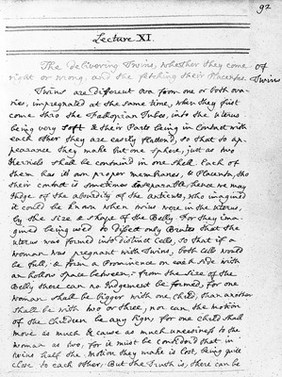 92
Lecture XI.
The delivering Twins, whether they come
right or wrong, and the fetching their Placentas.
Of
Twins
Twins are different ova from one or both ova-
ries, impregnated at the same time, when they first
come thro the Fallopian Tubes, into the Uterus
being very soft & their Parts being in Contact with
each other they are easily flatend, so that to ap-
pearance they make but one Sphere, just as two
Kernels shall be contained in one shell. Each of
them has its own proper membranes, & Placenta, tho
their contact is sometimes inseparable hence we may
judge of the absurdity of the antients, who imagined
it could be known when twins were in the uterus,
by the Size & shape of the Belly For they ima-
gined being used to dissect only Brutes that the
uterus was formed into distinct Cells, so that if a
woman was pregnant with Twins, both cells would
be full, & form a Prominence on each side with
an hollow Space between; from the size of the
Belly there can no Judgement be formed, for one
woman shall be bigger with one Child, than another
shall be with two or three, nor can the motion
of the Children be any Sign for one Child shall
move as much & cause as much uneasiness to the
woman as two, for it must be considered that in
twins half the Motion they make is lost, being quite
close to each other; But the Truth is, there can be